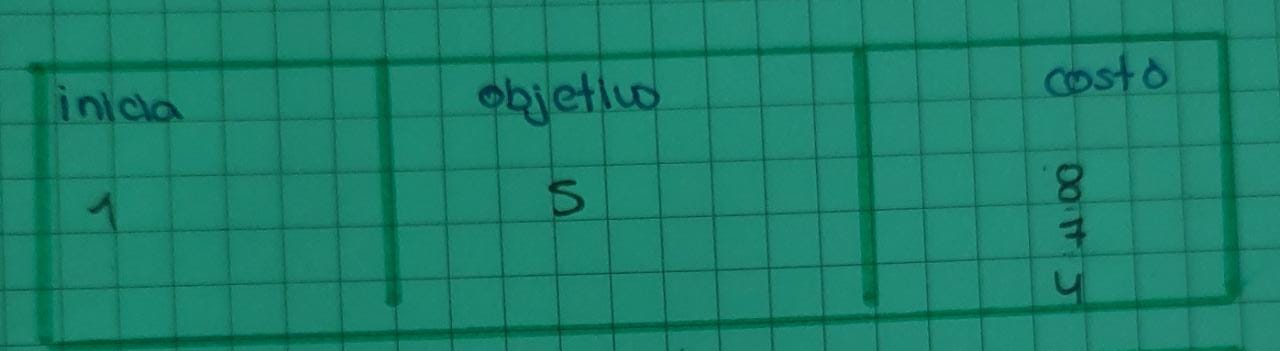 inicia objetivo costo
1 5 8
7
4